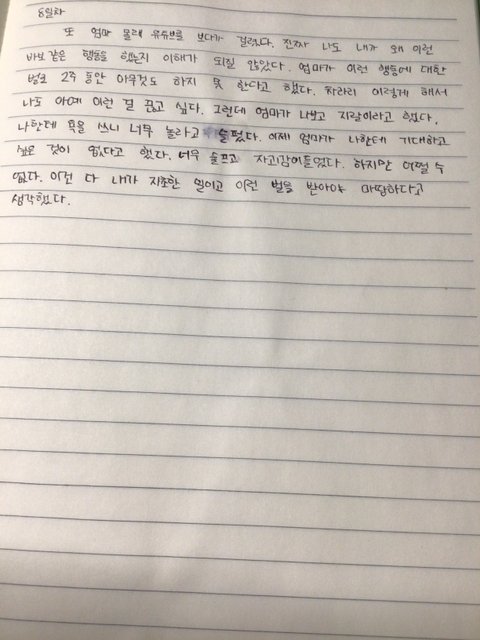 8일차
또 엄마 몰래 유슈브를 보다가 걸렸다. 진짜 나도 내가 왜 이런
바보 같은 행동을 했는지 이해가 되질 않았다. 엄마가 이런 행동에 대한
벌로 2주 동안 아무것도 하지 못 한다고 했다. 차라리 이렇게 해서
나도 아예 이런 걸 끊고 싶다. 그런데 엄마가 나보고 지랄이라고 했다.
나한테 욕을 쓰니 너무 놀라고 슬펐다. 이제 엄마가 나한테 기대하고
싶은 것이 없다고 했다. 너무 슬프고 자고감이들었다. 하지만 어쩔 수
없다. 이건 다 내가 자초한 일이고 이런 벌을 받아야 마땅하다고
생각했다.